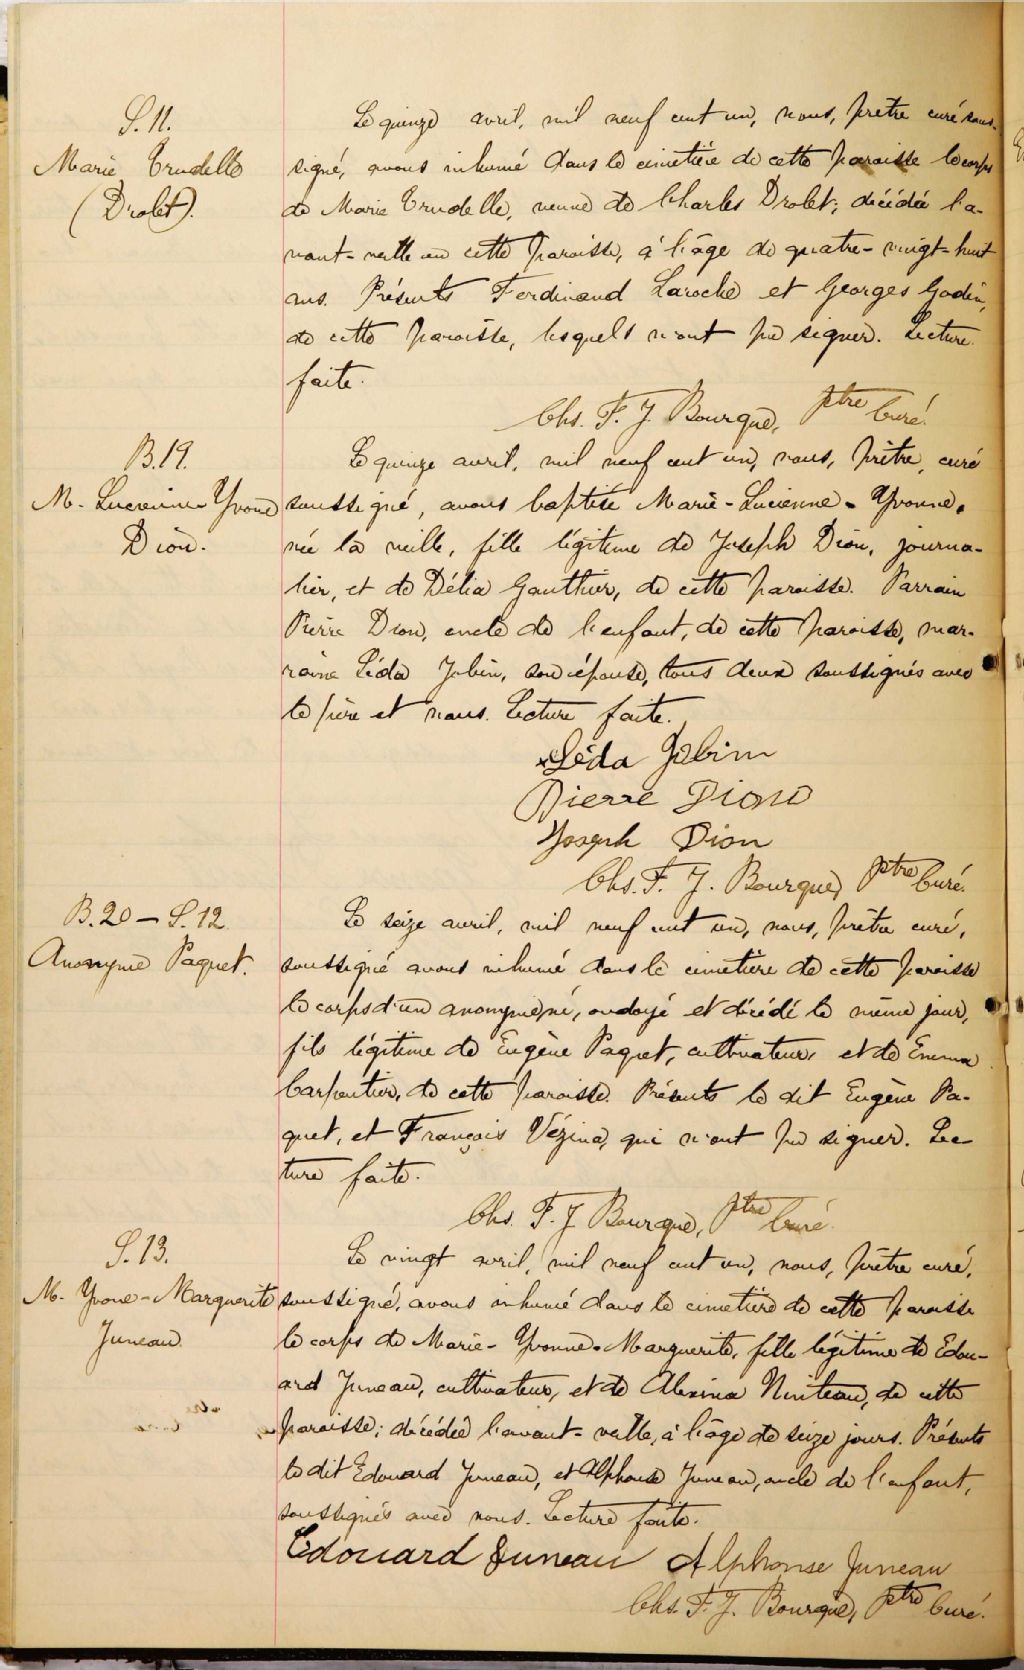 S. 11.
Marie Trudelle
(Drolet).
Le quinze avril, mil neuf cent un, nous, prêtre curé sous-
signé, avons inhumé dans le cimetière de cette paroisse le corps
de Marie Trudelle, veuve de Charles Drolet; décédée l'a-
vant-veille en cette paroisse, à l'âge de quatre-vingt-huit
ans. Présents Ferdinand Laroche et Georges Godin,
de cette paroisse, lesquels n'ont pu signer. Lecture
faite.
Chs. F. J. Bourque, Ptre Curé.
B. 19.
M. Lucienne Yvonne
Dion.
Le quinze avril, mil neuf cent un, nous, prêtre, curé
soussigné, avons baptisé Marie-Lucienne-Yvonne,
née la veille, fille légitime de Joseph Dion, journa-
lier, et de Délia Gauthier, de cette paroisse. Parrain
Pierre Dion, oncle de l'enfant, de cette paroisse, mar-
raine Léda Jobin, son épouse, tous deux soussignés avec
le père et nous. Lecture faite.
Léda Jobin
Pierre Dion
Joseph Dion
Chs. F. J. Bourque, Ptre Curé.
B. 20 – S. 12
Anonyme Paquet.
Le seize avril, mil neuf cent un, nous, prêtre curé,
soussigné avons inhumé dans le cimetière de cette paroisse
le corps d'un anonyme né, ondoyé et décédé le même jour,
fils légitime de Eugène Paquet, cultivateur, et de Emma
Carpentier, de cette paroisse. Présents le dit Eugène Pa-
quet, et François Vézina, qui n'ont pu signer. Lec
ture faite.
Chs. F. J. Bourque, Ptre Curé.
S. 13.
M. Yvone-Marguerite
Juneau
Le vingt avril, mil neuf cent un, nous, prêtre curé,
soussigné, avons inhumé dans le cimetière de cette paroisse
le corps de Marie-Yvonne-Marguerite, fille légitime de Edou-
ard Juneau, cultivateur, et de Alexina, de cette
paroisse; décédée l'avant-veille, à l'âge de seize jours. Présents
le dit Edouard Juneau, et Alphonse Juneau, oncle de l'enfant,
soussignés avec nous. Lecture faite.
Edouard Juneau Alphonse Juneau
Chs. F. J. Bourque, Ptre Curé.